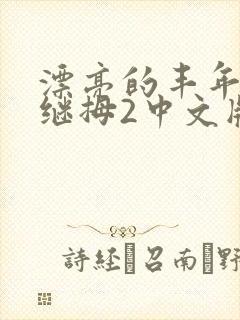 漂亮的丰年
继拇2中文版
詩経 召南 野